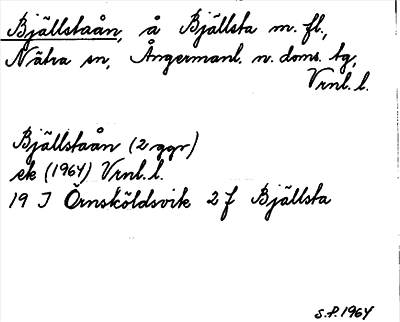 Bjällstaån, å Bjällsta m. fl.,
Nätra sn, Ångermanl. n. doms. tg,
Vrnl. l.
Bjällstaån (2 ggr)
ek (1964) Vrnl. l.
19 J Örnsköldsvik 2 f Bjällsta
S.P. 1964